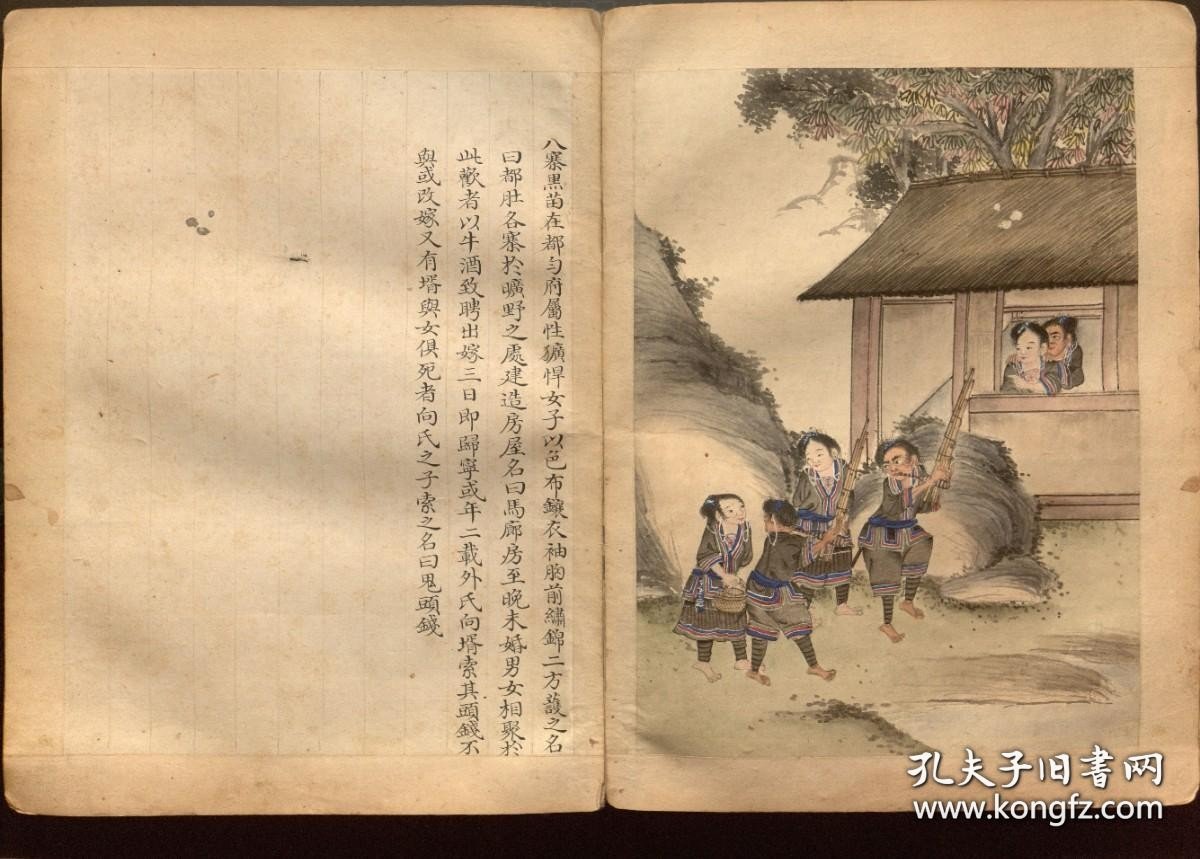 八寨黑苗在都勻府屬性獷悍女子以色布鑲衣袖胸前繡錦二方護之名
曰都肚各寨於曠野之處建造房屋名曰馬廊房至晚未婚男女相聚於
此歡者以牛酒致聘出嫁三日即歸寧或年二載外氏向壻索其頭錢不
與或改嫁又有壻與女俱死者向氏之子索之名曰鬼頭錢
孔夫子旧书网
www.kongfz.com